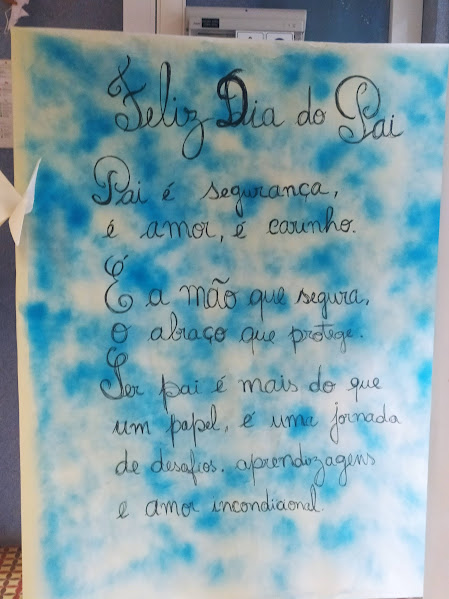 Feliz Dia do Pai
Pai é segurança,
é amor, é carinho.
É a mão que segura,
o abraço que protege.
Ser pai é mais do que
um papel, é uma jornada
de desafios. aprendizagens
e amor incondicional.